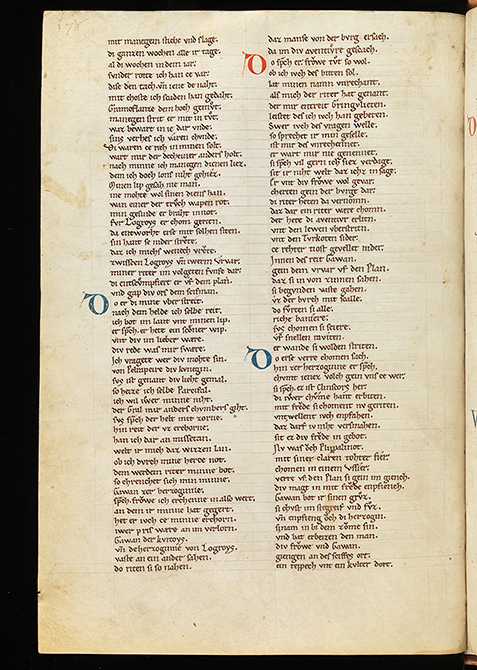 mit manegem stiche vnd slage.
di ganzen wochen alle ir tage.
al di wochen in dem iar.
svnder rotte ich han ce var.
dise den tach. vñ iene de naht.
mit choste ich schaden han gedaht.
Gramoflanze dem hoch gemvt.
manegen strit er mit in tvt.
waz bewart in ie dar vnde.
sins verhes ich varen chvnde.
Di waren ce rich in minen solt.
wart mir der decheiner anders holt.
nach minne ich manegen dienen liez.
dem ich doch lons niht gehiez.
Minen lip gesah nie man.
ine mohte wol sinen diens han.
wan einer der trvch wapen rot.
min gesinde er braht innot.
fvr Logroys er chom geriten.
da entworht er sie mit solhen siten.
sin hant se nider strœte.
daz ich michs wenech vrœte.
zwisschen Logroys vñ iwerm vrvar.
miner riter im volgeten funfe dar.
di entschvmpfiert er vf dem plan.
vnd gap div ors dem scifman.
Do er di mine vber streit.
nach dem helde ich selbe reit.
ich bot im lant vnt minen lip.
er sp̄ch. er hete ein schoner wip.
vnt div im lieber ware.
div rede was mir sware.
Ich vragete wer div mohte sin.
von Pelrapeire div kvnegin.
svs ist genant div lieht gemal.
so heize ich selbe Parcifal.
ich wil iwer minne niht.
der Gral mir anders chvmbers giht.
svs sp̄ch der helt mit zorne.
hin reit der vz erchorne.
han ich dar an missetan.
welt ir mich daz wizzen lan.
ob ich dvrch mine herce not.
dem werden riter minne bot.
so chrenchet sich min minne.
Gawan zer herzoginne.
sp̄ch. frowe ich erchenne in also wert.
an dem ir minne hat gegert.
het er iwch ce minne erchorn.
iwer pris ware an im verlorn.
Gawan der kvrtoys.
vñ de herzoginne von Logroys.
vaste an ein ander sahen.
do riten si so nahen.
daz manse von der bvrg ersach.
da im div aventivre gescach.
Do sp̄ch er. frowe tvt so wol.
ob ich iwch des bitten sol.
lat minen namn vnrechant.
als mich der riter hat genant.
der mir entreit Gringvlieten.
leistet des ich iwch han gebeten.
Swer iwch des vragen welle.
so sprechet ir min geselle.
ist mir des vnrechennet.
er wart mir nie genennet.
si sp̄ch vil gern ich siez verdage.
sit ir niht welt daz ichz in sage.
Er vnt div frowe wol gevar.
cherten gein der bvrge dar.
di riter heten da vernomn.
daz dar ein riter ware chomn.
der hete di aventivr erliten.
vnt den lewen vberstriten.
vnt den tvrkoten sider.
ce rehter tiost gevellet nider.
Innen des reit Gawan.
gein dem vrvar vf den plan.
daz si in von zinnen sahen.
si begvnden vaste gahen.
vz der bvrch mit scalle.
do fvrten si alle.
riche baniere.
svs chomen si sciere.
vf snellen raviten.
er wande si wolden striten.
Do er se verre chomen sach.
hin zer herzoginne er sp̄ch.
chvmt iener volch gein vns ce wer.
si sp̄ch. ez ist Clinscors her.
di iwer chvme hant erbiten.
mit frœde si choment nv geriten.
vnt wellent iwch enpfahen.
daz darf iv niht versmahen.
sit ez div frœde in gebot.
Nv was och Plippalinot.
mit siner claren tohter fier.
chomen in einem vssier.
verre vf den plan si gein im giench.
div magt in mit frœde enpfiench.
Gawan bot ir sinen grvz.
si chvst im stegreif vnd fvz.
vñ enpfieng och di herzogin.
si nam in bi dem zœme sin.
vnd bat erbeizen den man.
div frowe vnd Gawan.
giengen an des sciffes ort.
ein teppech vnt ein kvlter dort.